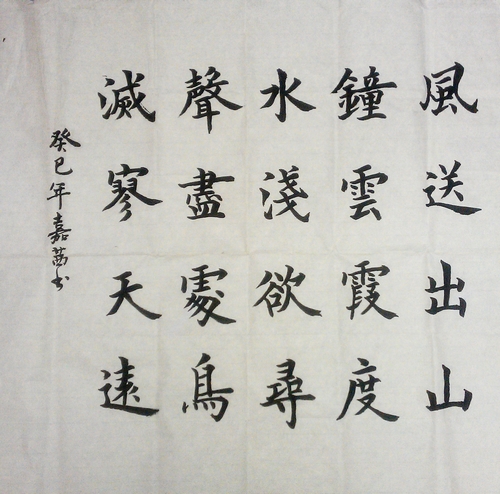 風送出山
鐘雲霞度
水淺欲尋
聲盡處鳥
滅寥天遠
癸巳年嘉茜书